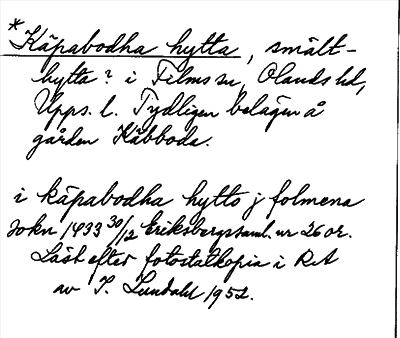 * Käpabodha hytta, smält-
hytta? i Films sn, Olands hd,
Upps. l. Tydligen belägen å
gården Käbboda.
i käpabodha hytto j folmena
sokn 1433 30/12 Eriksbergssaml. nr 26 or.
Läst efter fotostatkopia i RA
av I. Lundahl 1952.